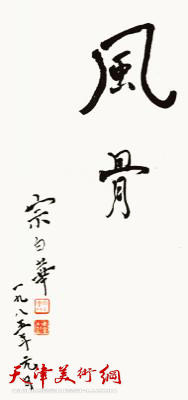 風骨
宗白華
一九八五年元月
天津美術網